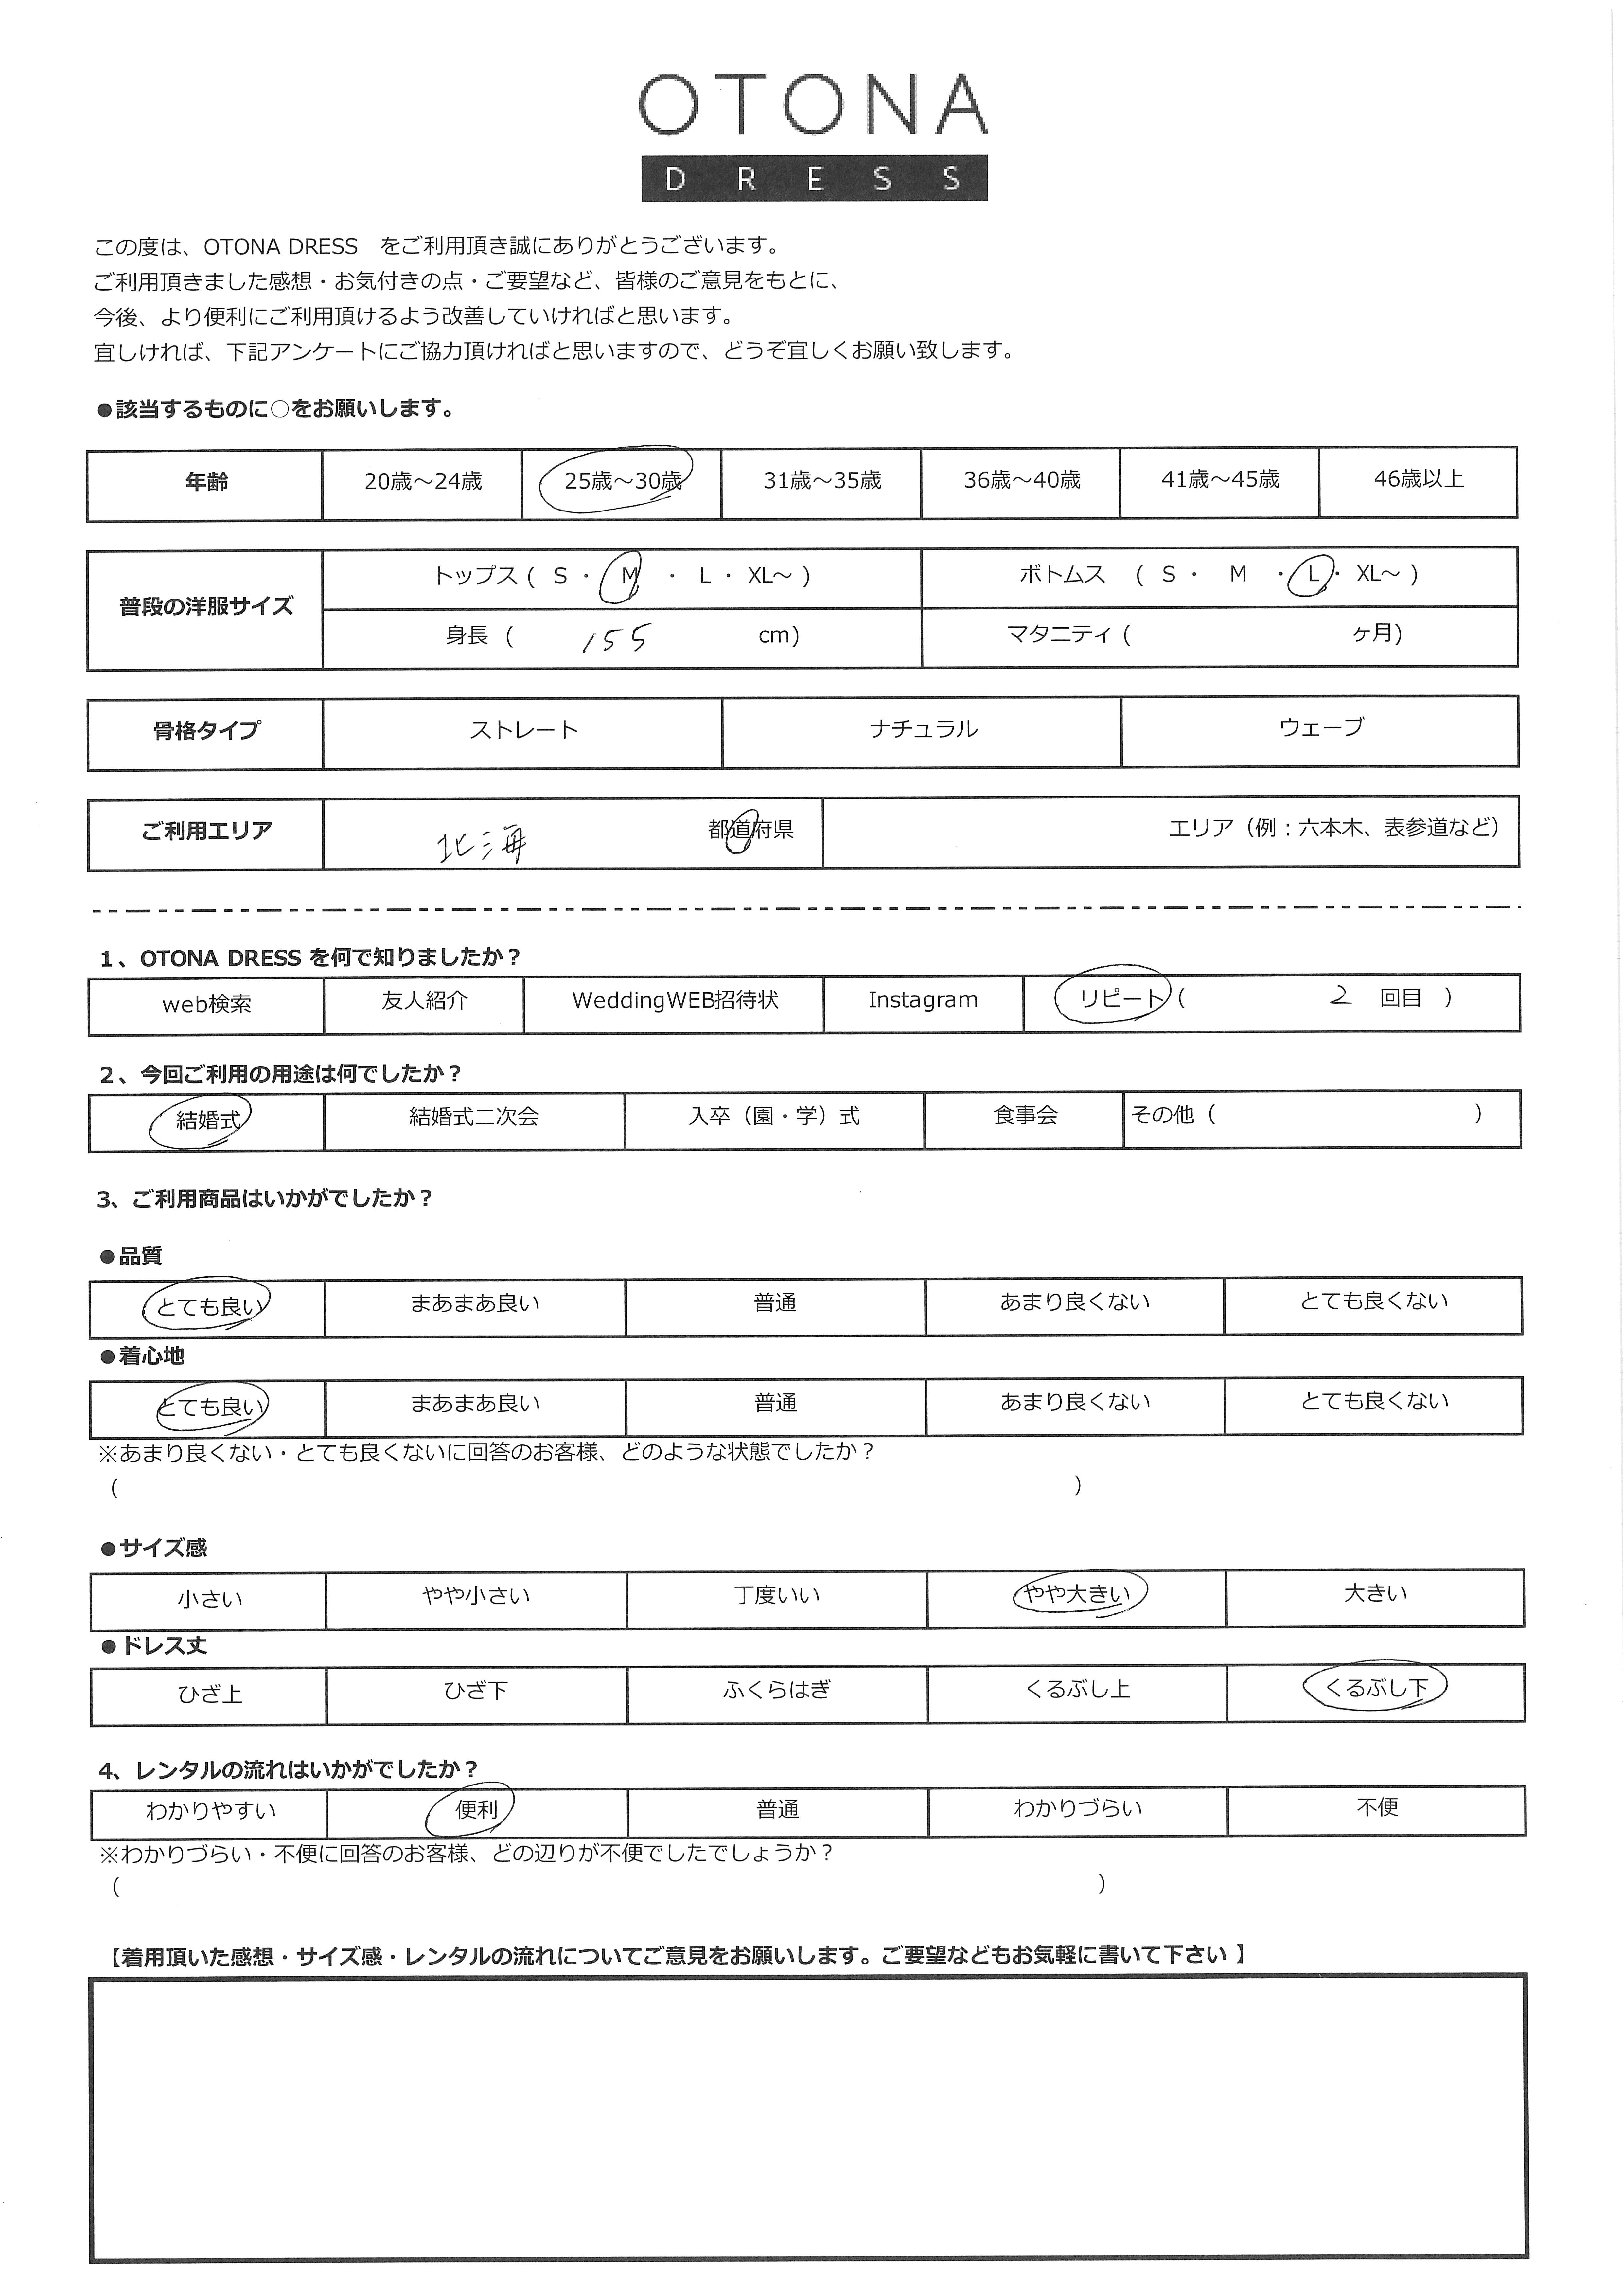 OTONA
DRESS
この度は、OTONA DRESS　をご利用頂き誠にありがとうございます。
ご利用頂きました感想・お気付きの点・ご要望など、皆様のご意見をもとに、
今後、より便利にご利用頂けるよう改善していければと思います。
宜しければ、下記アンケートにご協力頂ければと思いますので、どうぞ宜しくお願い致します。
●該当するものに○をお願いします。
年齢 20歳～24歳 25歳～30歳 31歳～35歳 36歳～40歳 41歳～45歳 46歳以上
普段の洋服サイズ
トップス ( S ・ M ・ L ・ XL～ ) ボトムス ( S ・ M ・ L ・ XL～ )
身長 ( 155 cm) マタニティ ( ヶ月)
骨格タイプ ストレート ナチュラル ウェーブ
ご利用エリア 北海 都道府県 エリア（例：六本木、表参道など）
1、OTONA DRESS を何で知りましたか？
web検索 友人紹介 WeddingWEB招待状 Instagram リピート ( 2 回目 )
2、今回ご利用の用途は何でしたか？
結婚式 結婚式二次会 入卒（園・学）式 食事会 その他（ ）
3、ご利用商品はいかがでしたか？
●品質
とても良い まあまあ良い 普通 あまり良くない とても良くない
●着心地
とても良い まあまあ良い 普通 あまり良くない とても良くない
※あまり良くない・とても良くないに回答のお客様、どのような状態でしたか？
( )
●サイズ感
小さい やや小さい 丁度いい やや大きい 大きい
●ドレス丈
ひざ上 ひざ下 ふくらはぎ くるぶし上 くるぶし下
4、レンタルの流れはいかがでしたか？
わかりやすい 便利 普通 わかりづらい 不便
※わかりづらい・不便に回答のお客様、どの辺りが不便でしたでしょうか？
( )
【着用頂いた感想・サイズ感・レンタルの流れについてご意見をお願いします。ご要望などもお気軽に書いて下さい 】